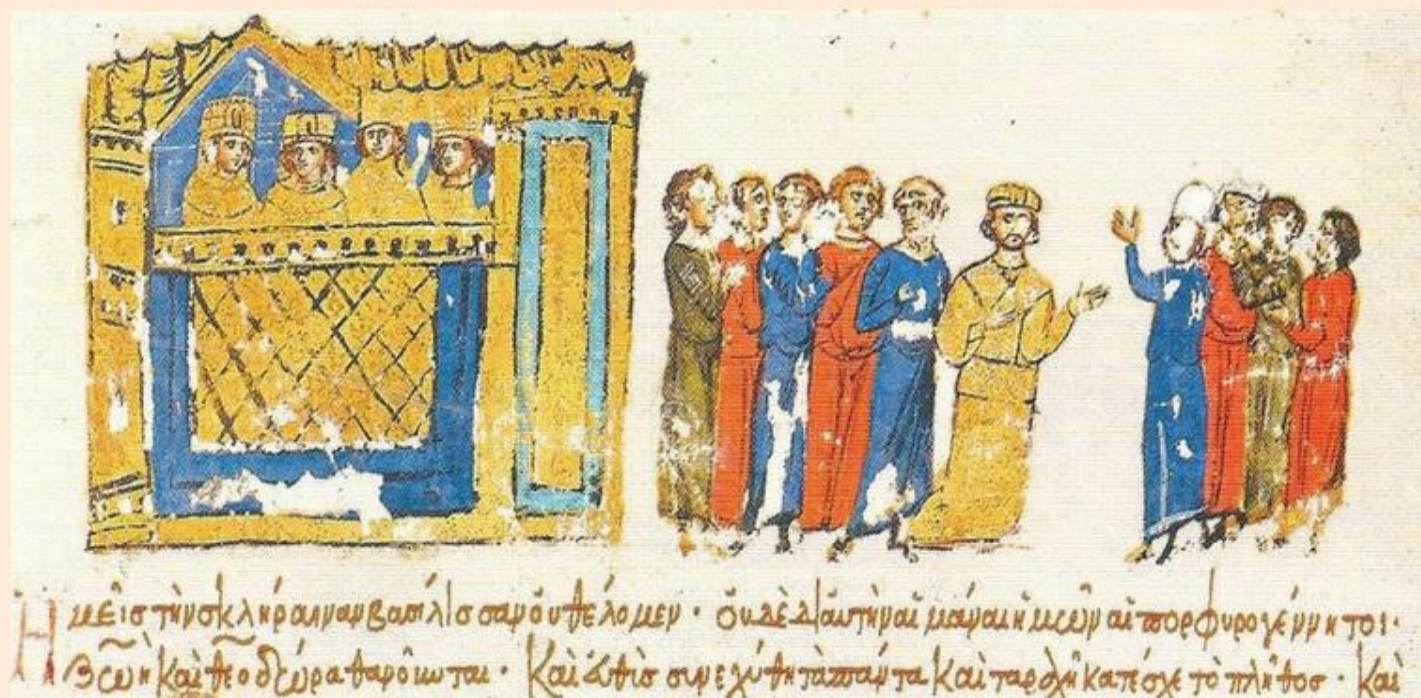 Ἡμεῖς τὴν σκλήραιναν βασίλισσαν οὐ θέλομεν · οὐδὲ δι αυτὴν αἱ μάναι ἡμῶν αἱ πορφυρογέννητοι ·
ζωὴ καὶ θεοδώρα · Καὶ συνεχύθη τὰ πάντα καὶ ταραχὴ κατέσχε τὸ πλῆθος · Καὶ